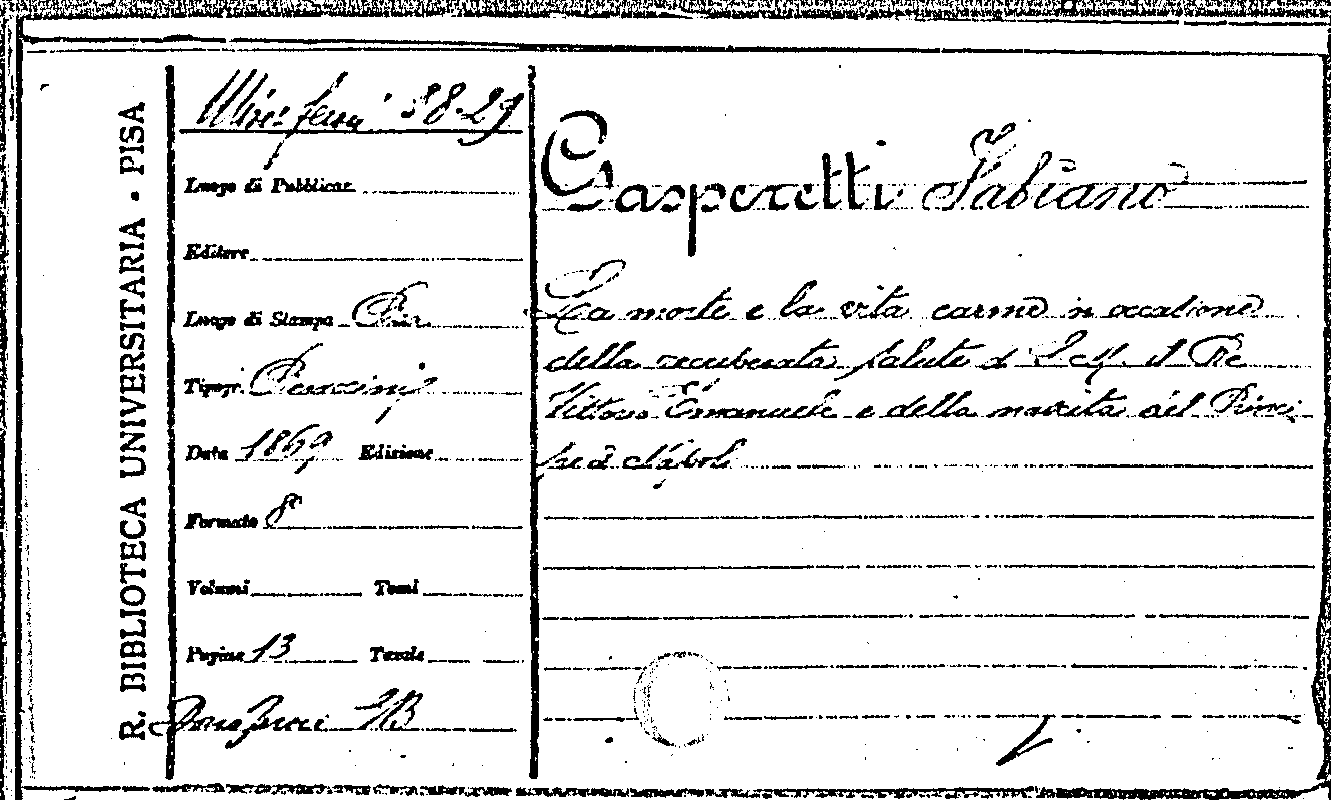 R. BIBLIOTECA UNIVERSITARIA - PISA
38.29
Luogo di Pubblicaz.
Editore
Luogo di Stampa Pisa
Tipogr. Pieraccini
Data 1869 Edizione
Formato 8°
Volumi Tomi
Pagine 13 Tavole
Gasperetti Fabiano
La morte e la vita carme in occasione
della recuperata salute di S. M. il Re
Vittorio Emanuele e della nascita del Princi
pe di Napoli